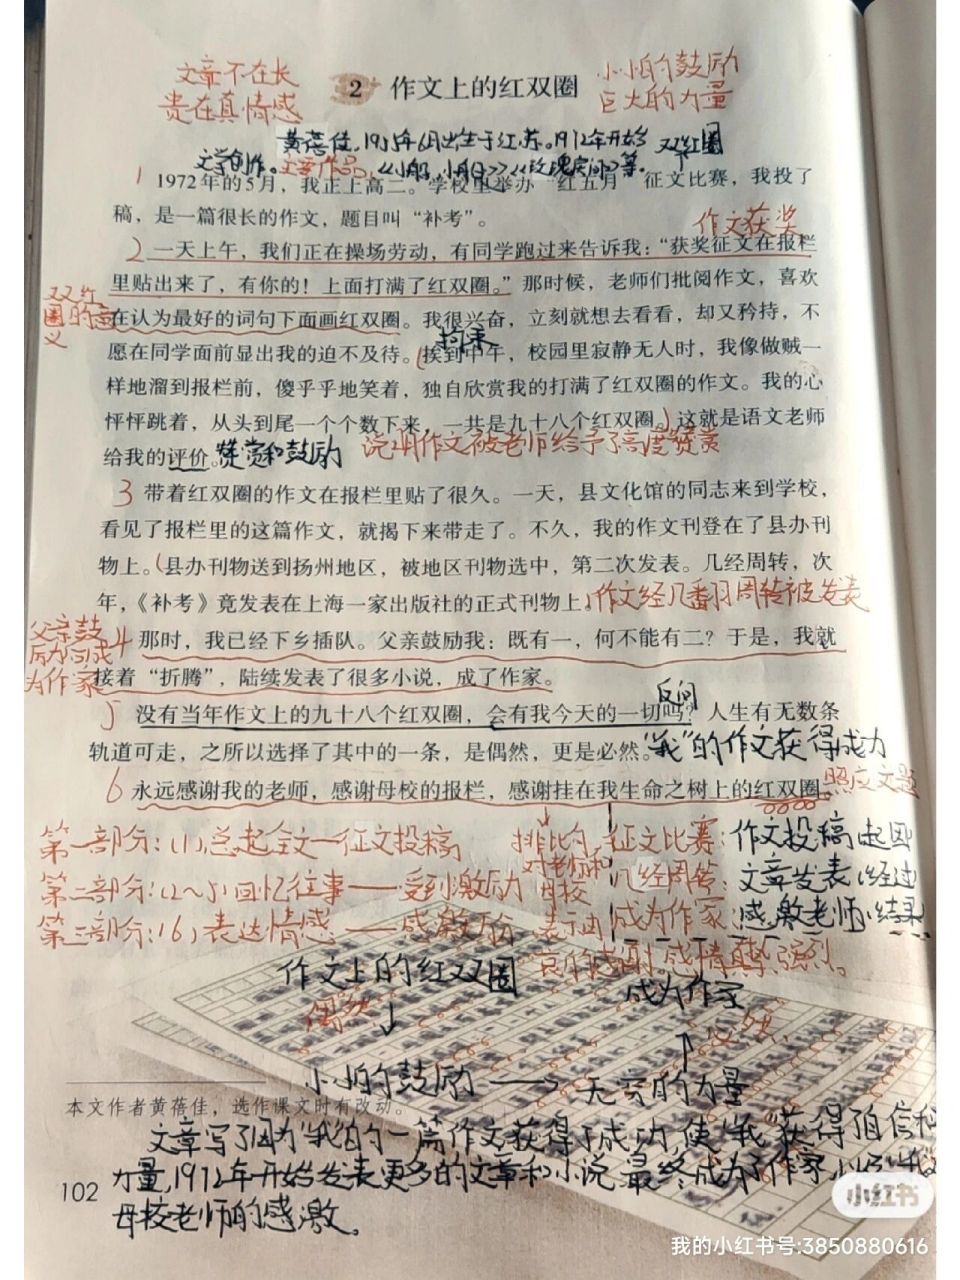 文章不在长
贵在真情感
2 作文上的红双圈
小小的鼓励
巨大的力量
黄蓓佳,1955年6月出生于江苏。1972年开始
双红圈
文学创作。文章作品《小船,小船》《玫瑰房间》等。
1 1972年的5月,我正上高二。学校里举办“红五月”征文比赛,我投了
稿,是一篇很长的作文,题目叫“补考”。
作文获奖
2 一天上午,我们正在操场劳动,有同学跑过来告诉我:“获奖征文在报栏
里贴出来了,有你的!上面打满了红双圈。”那时候,老师们批阅作文,喜欢
双红
圈的含
义
在认为最好的词句下面画红双圈。我很兴奋,立刻就想去看看,却又矜持,不
拘束
愿在同学面前显出我的迫不及待。(挨到中午,校园里寂静无人时,我像做贼一
样地溜到报栏前,傻乎乎地笑着,独自欣赏我的打满了红双圈的作文。我的心
怦怦跳着,从头到尾一个个数下来,一共是九十八个红双圈。)这就是语文老师
给我的评价。赞赏和鼓励 说明作文被老师给予了高度赞赏
3 带着红双圈的作文在报栏里贴了很久。一天,县文化馆的同志来到学校,
看见了报栏里的这篇作文,就揭下来带走了。不久,我的作文刊登在了县办刊
物上。(县办刊物送到扬州地区,被地区刊物选中,第二次发表。几经周转,次
年,《补考》竟发表在上海一家出版社的正式刊物上。)作文经几番周转被发表
父亲鼓
励成
为作家
4 那时,我已经下乡插队。父亲鼓励我:既有一,何不能有二?于是,我就
接着“折腾”,陆续发表了很多小说,成了作家。
反问
5 没有当年作文上的九十八个红双圈,会有我今天的一切吗?人生有无数条
轨道可走,之所以选择了其中的一条,是偶然,更是必然。“我”的作文获得成功
6 永远感谢我的老师,感谢母校的报栏,感谢挂在我生命之树上的红双圈。照应文题
第一部分:(1)总起全文—征文投稿
第二部分:(2~5)回忆往事——受到激励
第三部分:(6)表达情感——感激万分
排比句
对老师和
母校
表示由
衷的感谢,感情真挚、强烈。
征文比赛:作文投稿(起因
几经周转:文章发表(经过
成为作家:感激老师(结果
作文上的红双圈
偶然
成为作家
必然
小小的鼓励
无穷的力量
本文作者黄蓓佳,选作课文时有改动。
文章写了因为“我”的一篇作文获得了成功,使“我”获得自信和
力量,1972年开始发表更多的文章和小说,最终成为了作家,以及“我”
母校老师的感激。
102
小红书
我的小红书号:3850880616